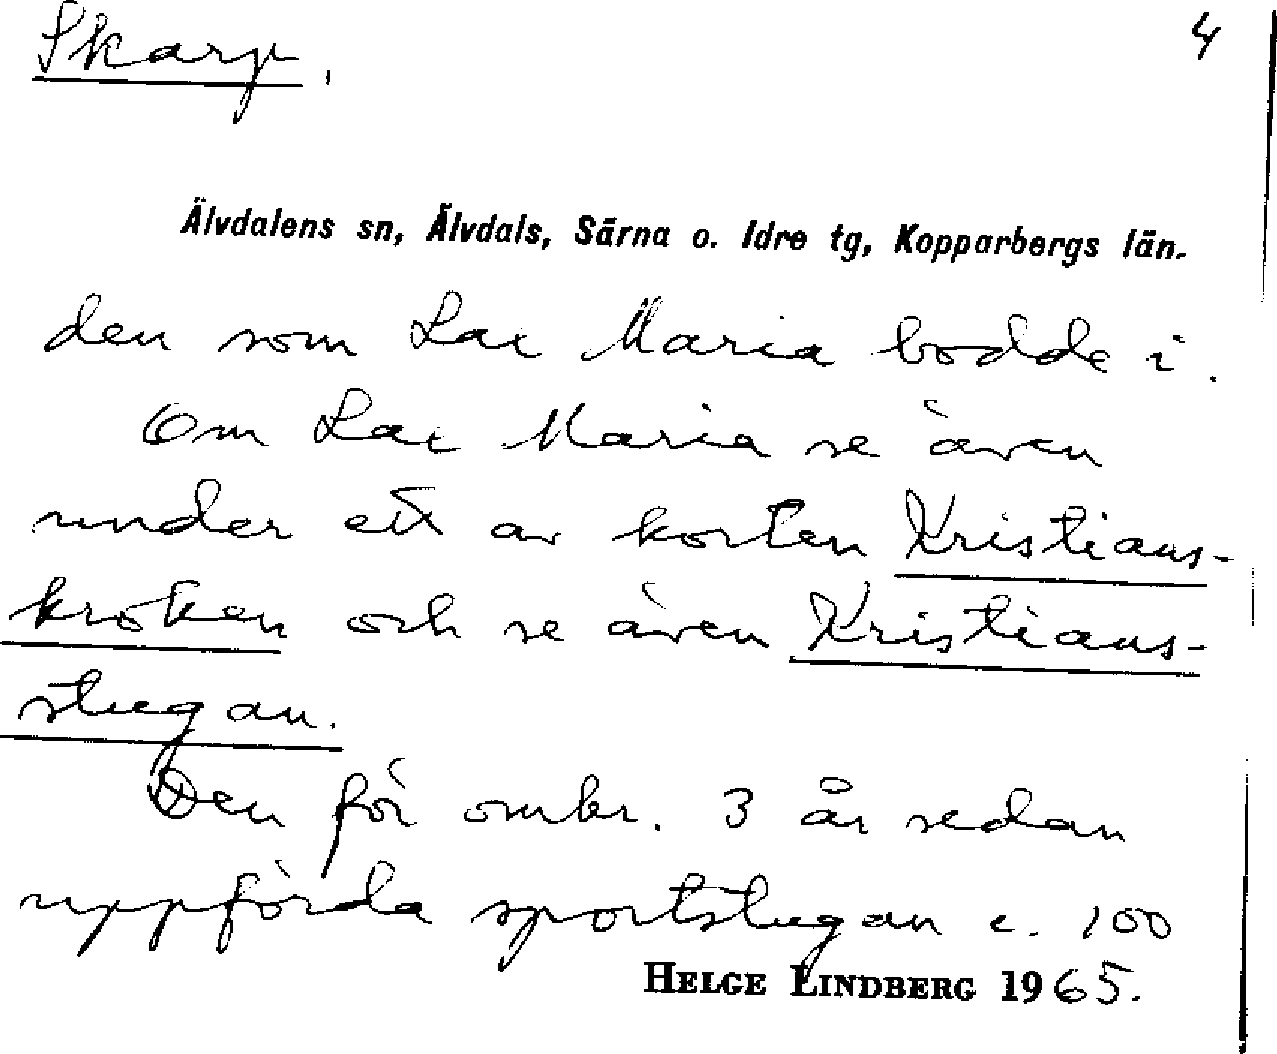 Skarp.
4
Älvdalens sn, Älvdals, Särna o. Idre tg, Kopparbergs län.
den som Lax Maria bodde i.
Om Lax Maria se även
under ett av korten Kristians-
kroken och se även Kristians-
stugan.
Den för omkr. 3 år sedan
uppförda sportstugan c. 100
HELGE LINDBERG 1965.